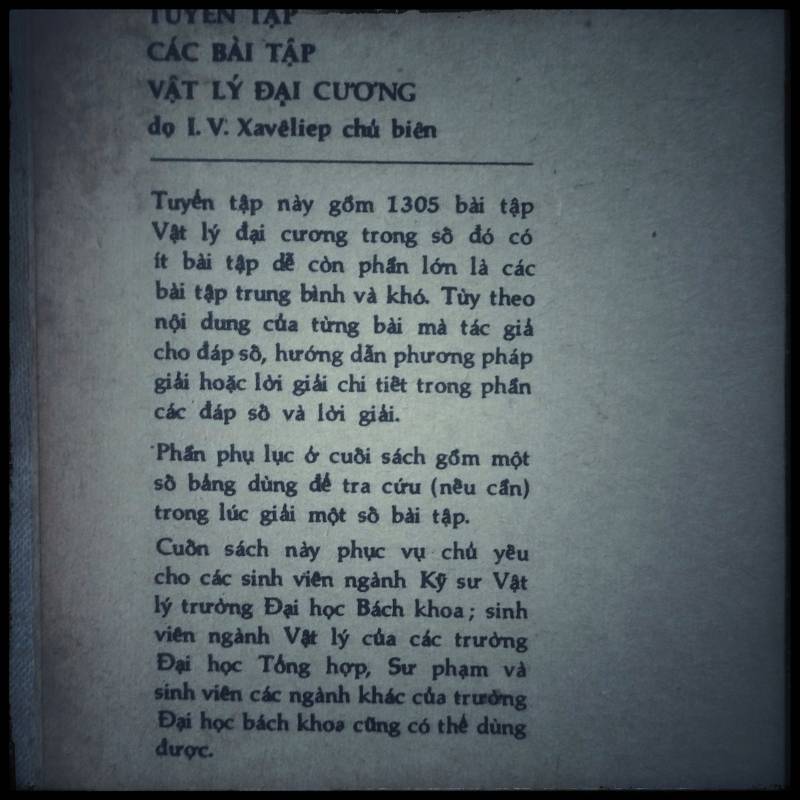 TUYỂN TẬP
CÁC BÀI TẬP
VẬT LÝ ĐẠI CƯƠNG
do I. V. Xavêliep chủ biên
Tuyển tập này gồm 1305 bài tập
Vật lý đại cương trong số đó có
ít bài tập dễ còn phần lớn là các
bài tập trung bình và khó. Tùy theo
nội dung của từng bài mà tác giả
cho đáp số, hướng dẫn phương pháp
giải hoặc lời giải chi tiết trong phần
các đáp số và lời giải.
Phần phụ lục ở cuối sách gồm một
số bảng dùng để tra cứu (nếu cần)
trong lúc giải một số bài tập.
Cuốn sách này phục vụ chủ yếu
cho các sinh viên ngành Kỹ sư Vật
lý trường Đại học Bách khoa; sinh
viên ngành Vật lý của các trường
Đại học Tổng hợp, Sư phạm và
sinh viên các ngành khác của trường
Đại học bách khoa cũng có thể dùng
được.